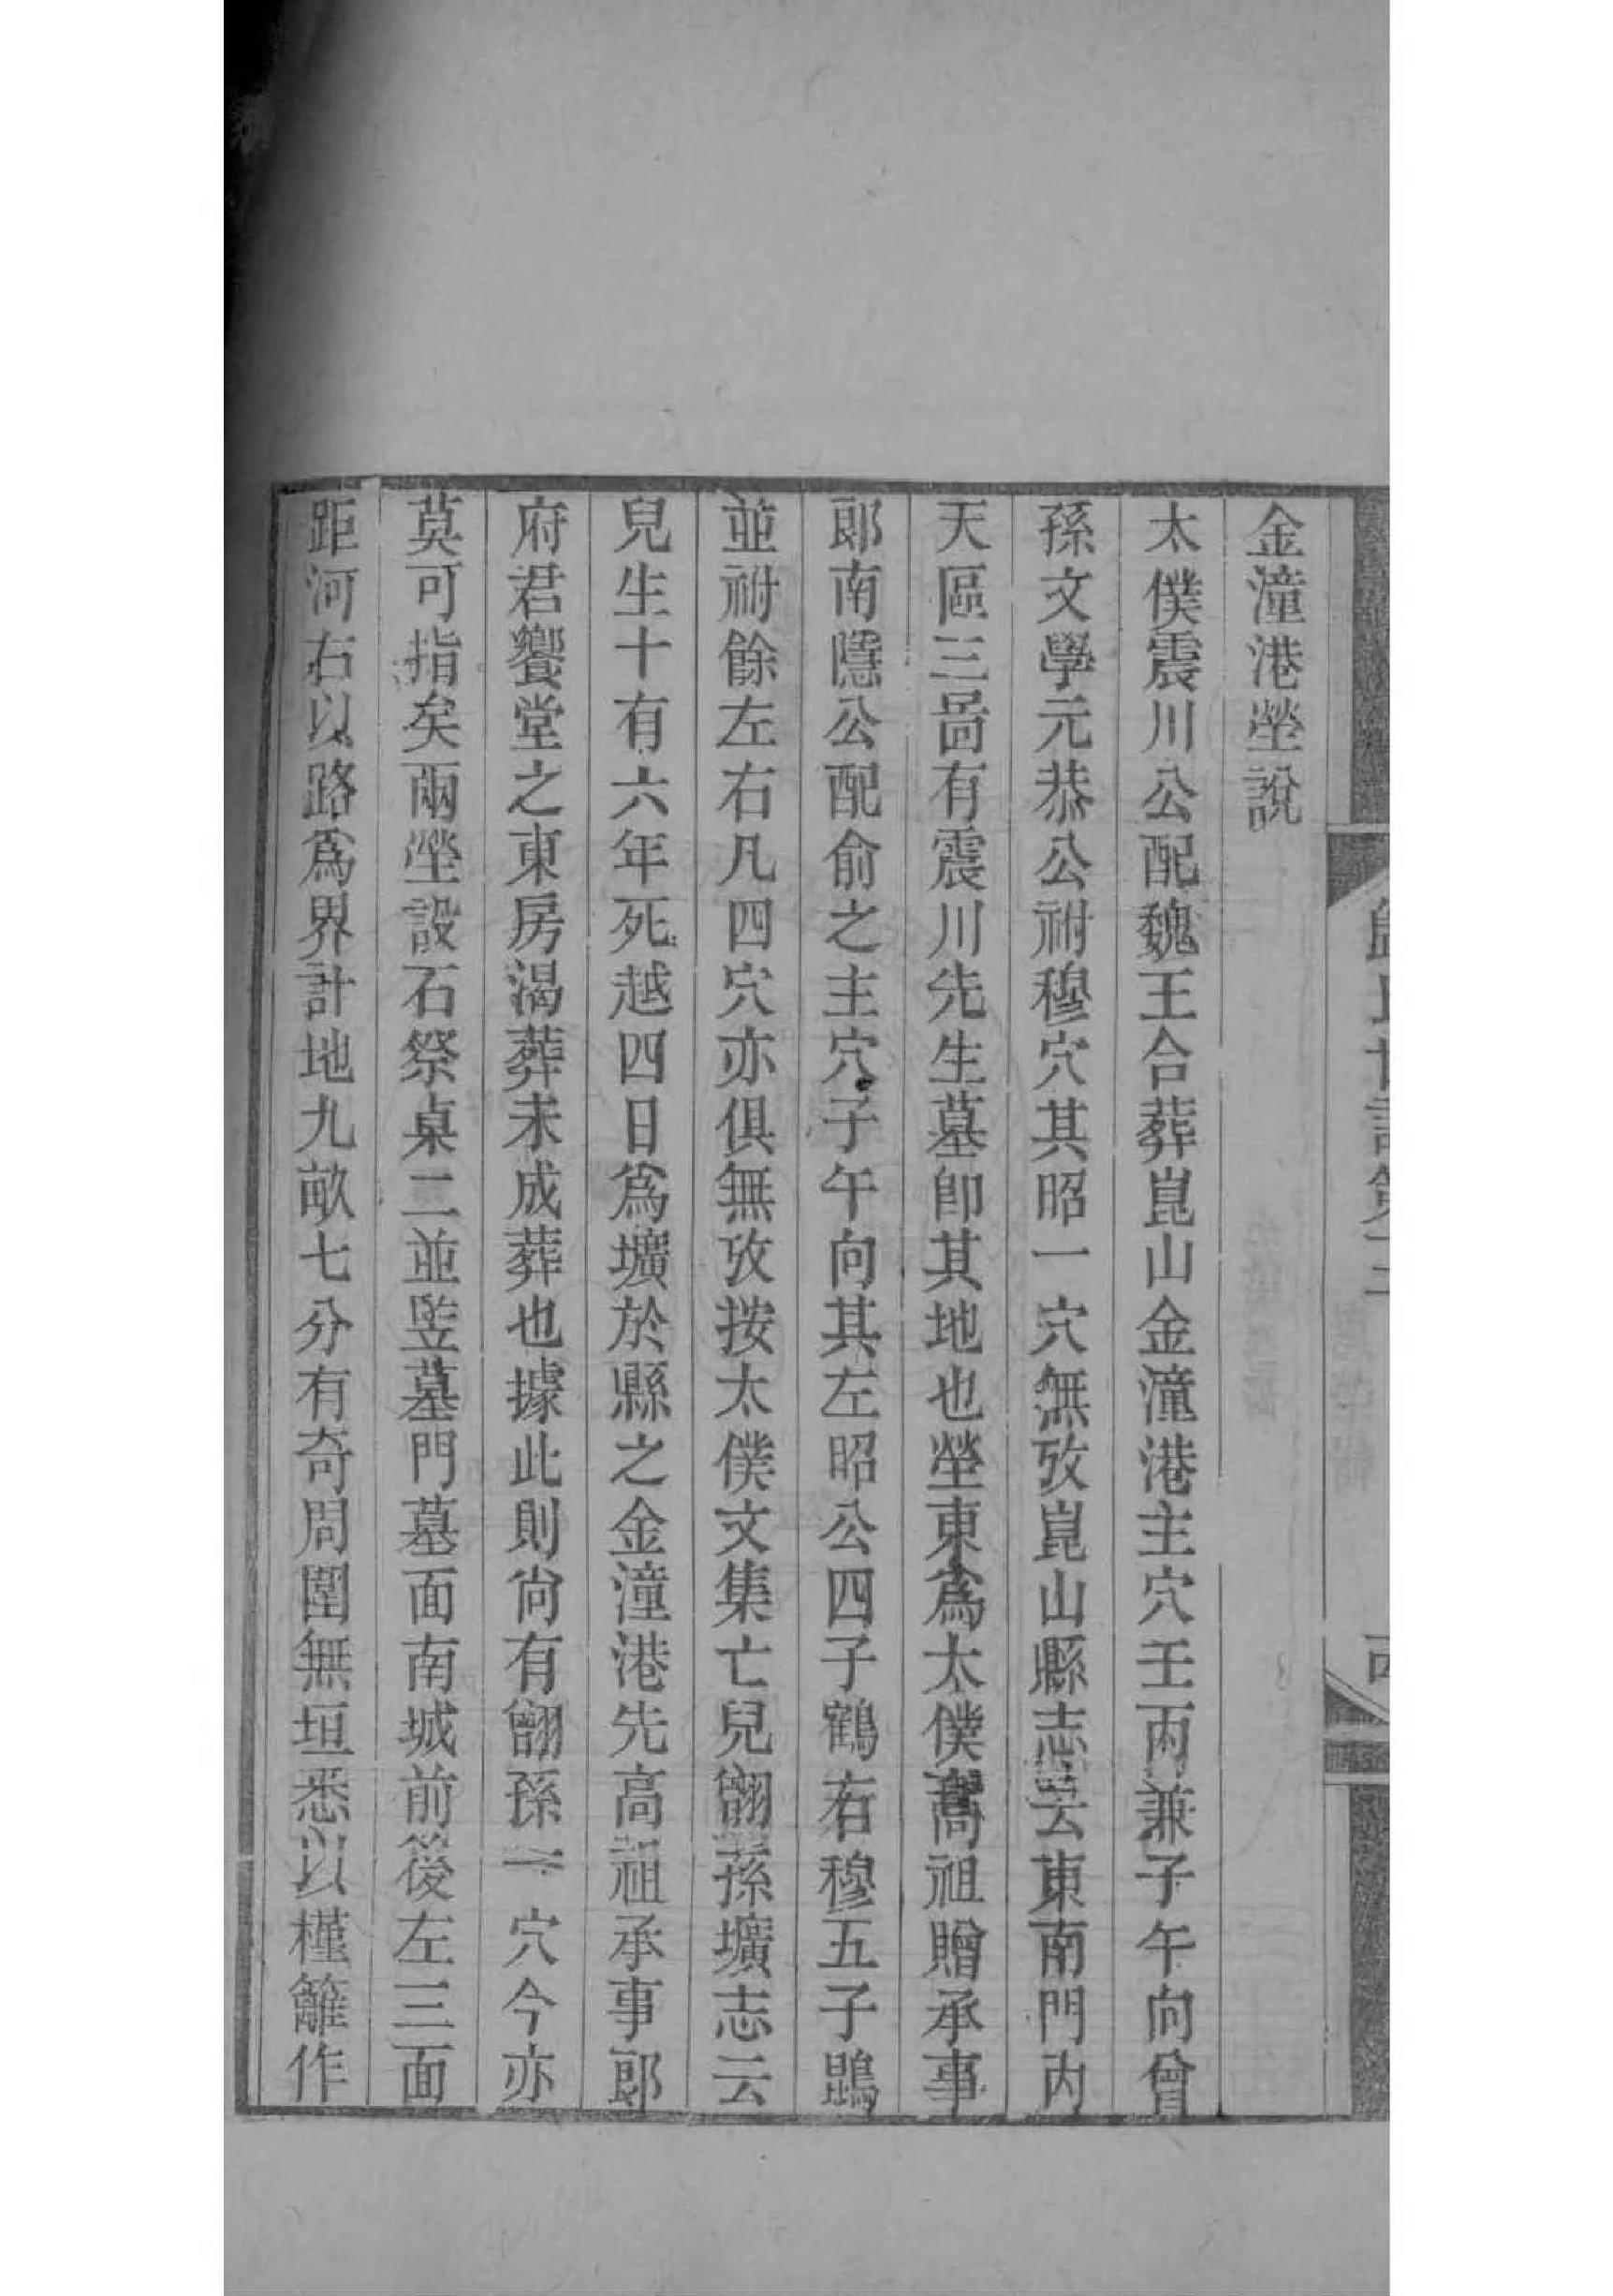 金潼港塋說
太僕震川公配魏王合葬崑山金潼港主穴壬丙兼子午向曾
孫文學元恭公祔穆穴其昭一穴無攷崑山縣志云東南門內
天區三啚有震川先生墓卽其地也塋東爲太僕高祖贈承事
郎南隱公配俞之主穴子午向其左昭公四子鶴右穆五子鵾
並祔餘左右凡四穴亦俱無攷按太僕文集亡兒𦒉孫壙志云
兒生十有六年死越四日爲壙於縣之金潼港先高祖承事郎
府君饗堂之東房渴葬未成葬也據此則尙有𦒉孫一穴今亦
莫可指矣兩塋設石祭桌二並豎墓門墓面南城前後左三面
距河右以路爲界計地九畝七分有奇周圍無垣悉以槿籬作